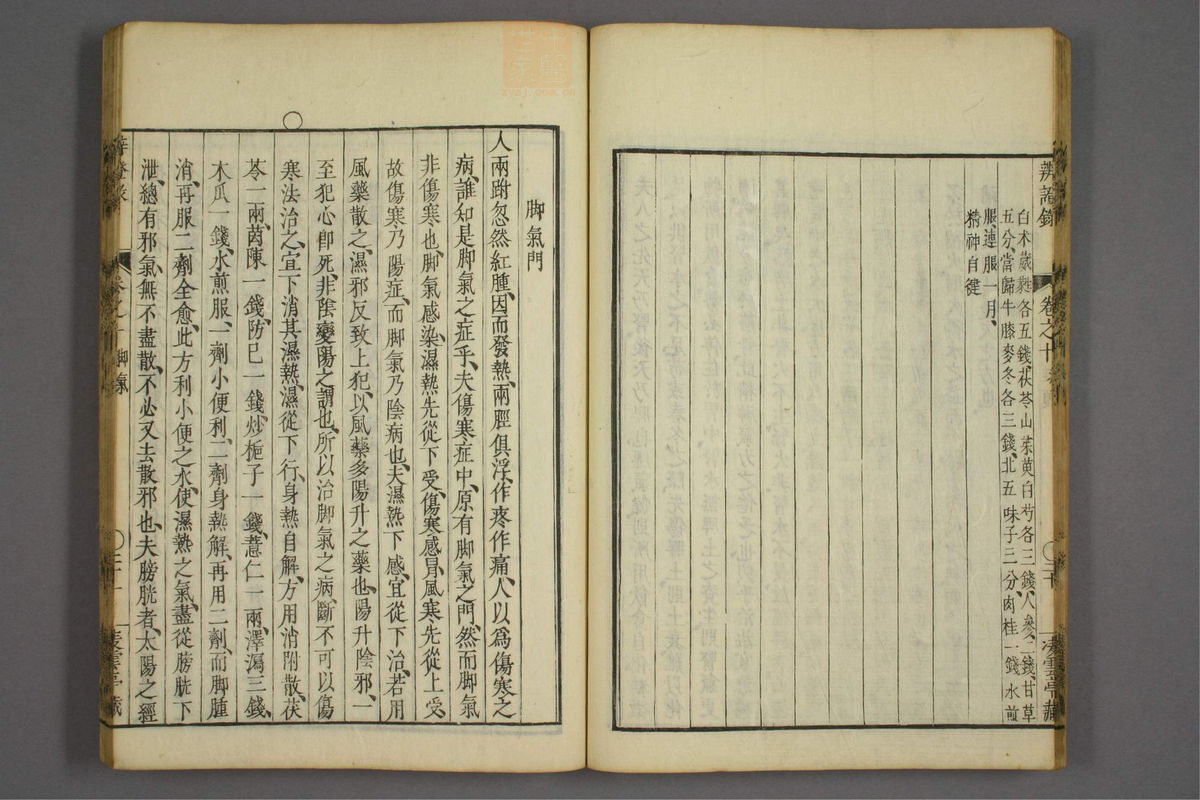 白朮葳蕤各五錢、茯苓山茱萸白芍各三錢、人參二錢、甘草
五分、當歸牛膝麥冬各三錢、北五味子三分、肉桂一錢水煎
服連服一月、
精神自健
卷之十
脚氣門
人兩跗忽然紅腫、因而發熱、兩脛俱浮、作疼作痛、人以爲傷寒之
病、誰知是脚氣之症乎、夫傷寒症中、原有脚氣之門、然而脚氣
非傷寒也、脚氣感染、濕熱先從下受、傷寒感冒、風寒先從上受、
故傷寒乃陽症、而脚氣乃陰病也、夫濕熱下感、宜從下治、若用
風藥散之、濕邪反致上犯、以風藥多陽升之藥也、陽升陰邪、一
至犯心卽死、非陰變陽之謂也、所以治脚氣之病、斷不可以傷
寒法治之、宜下消其濕熱、濕從下行、身熱自解、方用消附散、茯
苓一兩、茵陳一錢、防已一錢、炒梔子一錢、薏仁一兩、澤瀉三錢、
木瓜一錢、水煎服、一劑小便利、二劑身熱解、再用二劑、而脚腫
消、再服二劑全愈、此方利小便之水、使濕熱之氣、盡從膀胱下
泄、總有邪氣、無不盡散、不必又去散邪也、夫膀胱者、太陽之經
卷之十 脚氣